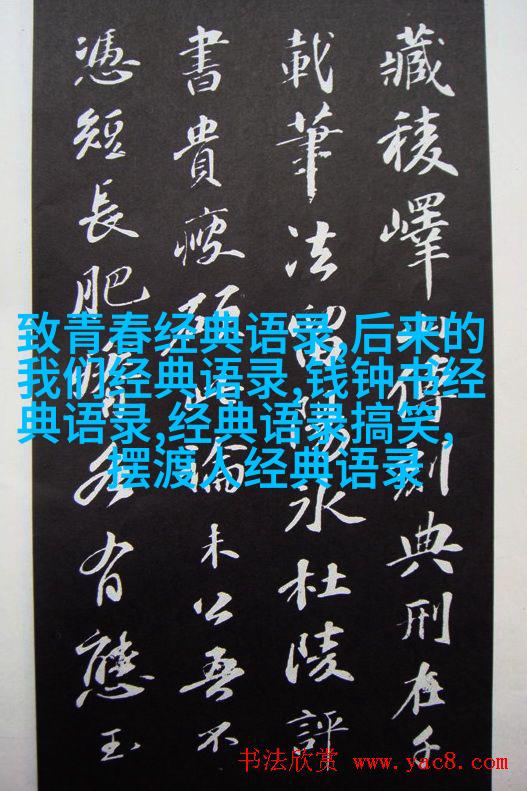 藏稜嶧山傳刻典刑在千
載筆法留陽冰杜陵評
書貴瘦硬此論未公吾不
憑短長肥瘠各有態玉
致青春经典语录,后来的
我们经典语录,钱钟书经
典语录,经典语录搞笑,
摆渡人经典语录
书法欣赏 www.yac8.com